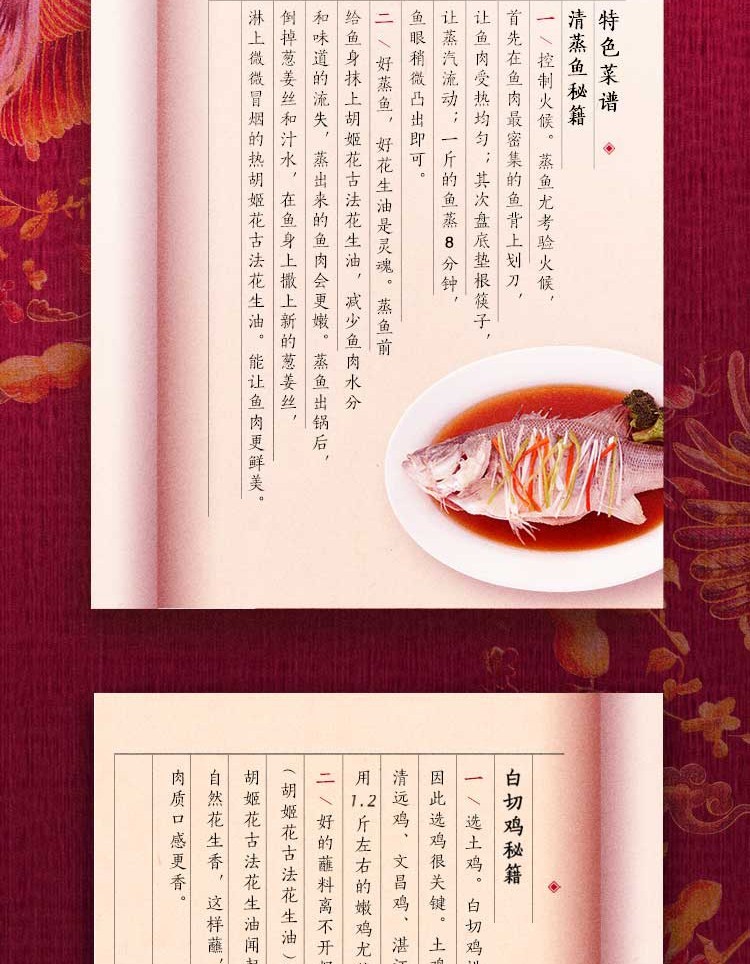 特色菜谱
清蒸鱼秘籍
一、控制火候。蒸鱼尤考验火候，
首先在鱼肉最密集的鱼背上划刀，
让鱼肉受热均匀；其次盘底垫根筷子，
让蒸汽流动；一斤的鱼蒸8分钟，
鱼眼稍微凸出即可。
二、好蒸鱼，好花生油是灵魂。蒸鱼前
给鱼身抹上胡姬花古法花生油，减少鱼肉水分
和味道的流失，蒸出来的鱼肉会更嫩。蒸鱼出锅后，
倒掉葱姜丝和汁水，在鱼身上撒上新的葱姜丝，
淋上微微冒烟的热胡姬花古法花生油。能让鱼肉更鲜美。
白切鸡秘籍
一、选土鸡。白切鸡
因此选鸡很关键。土鸡
清远鸡、文昌鸡、湛
用1.2斤左右的嫩鸡尤
二、好的蘸料离不开
（胡姬花古法花生油）
胡姬花古法花生油闻
自然花生香，这样蘸，
肉质口感更香。